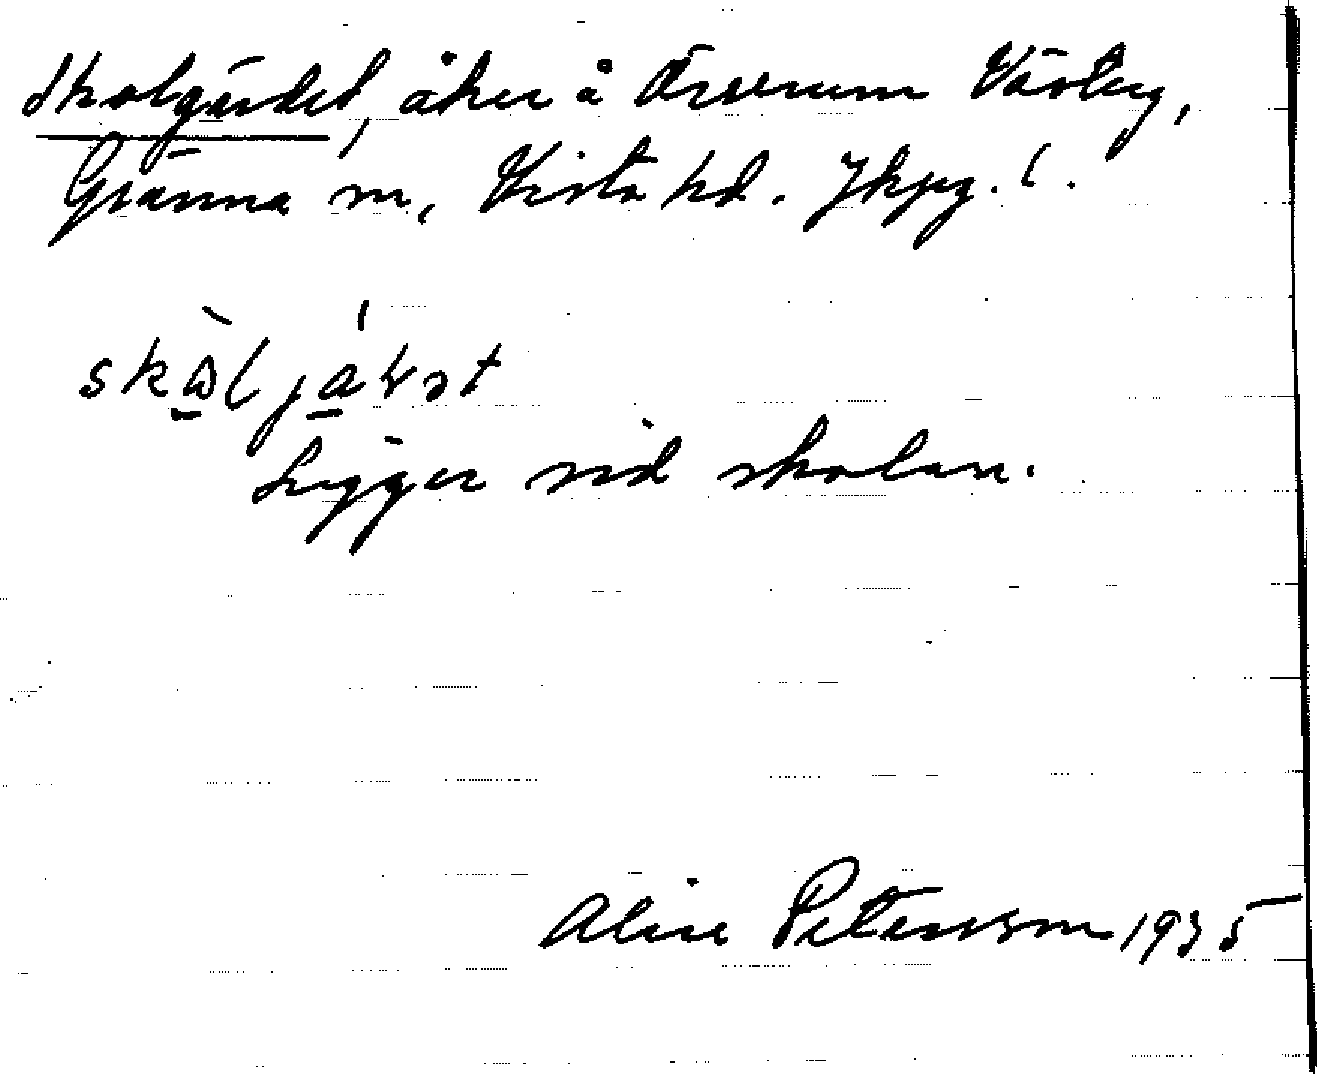 Skolgärdet, åker å Örserum Västerg,
Gränna sn, Vista hd. Jkpg. l.
Ligger vid skolan.
Aline Petersson 1935